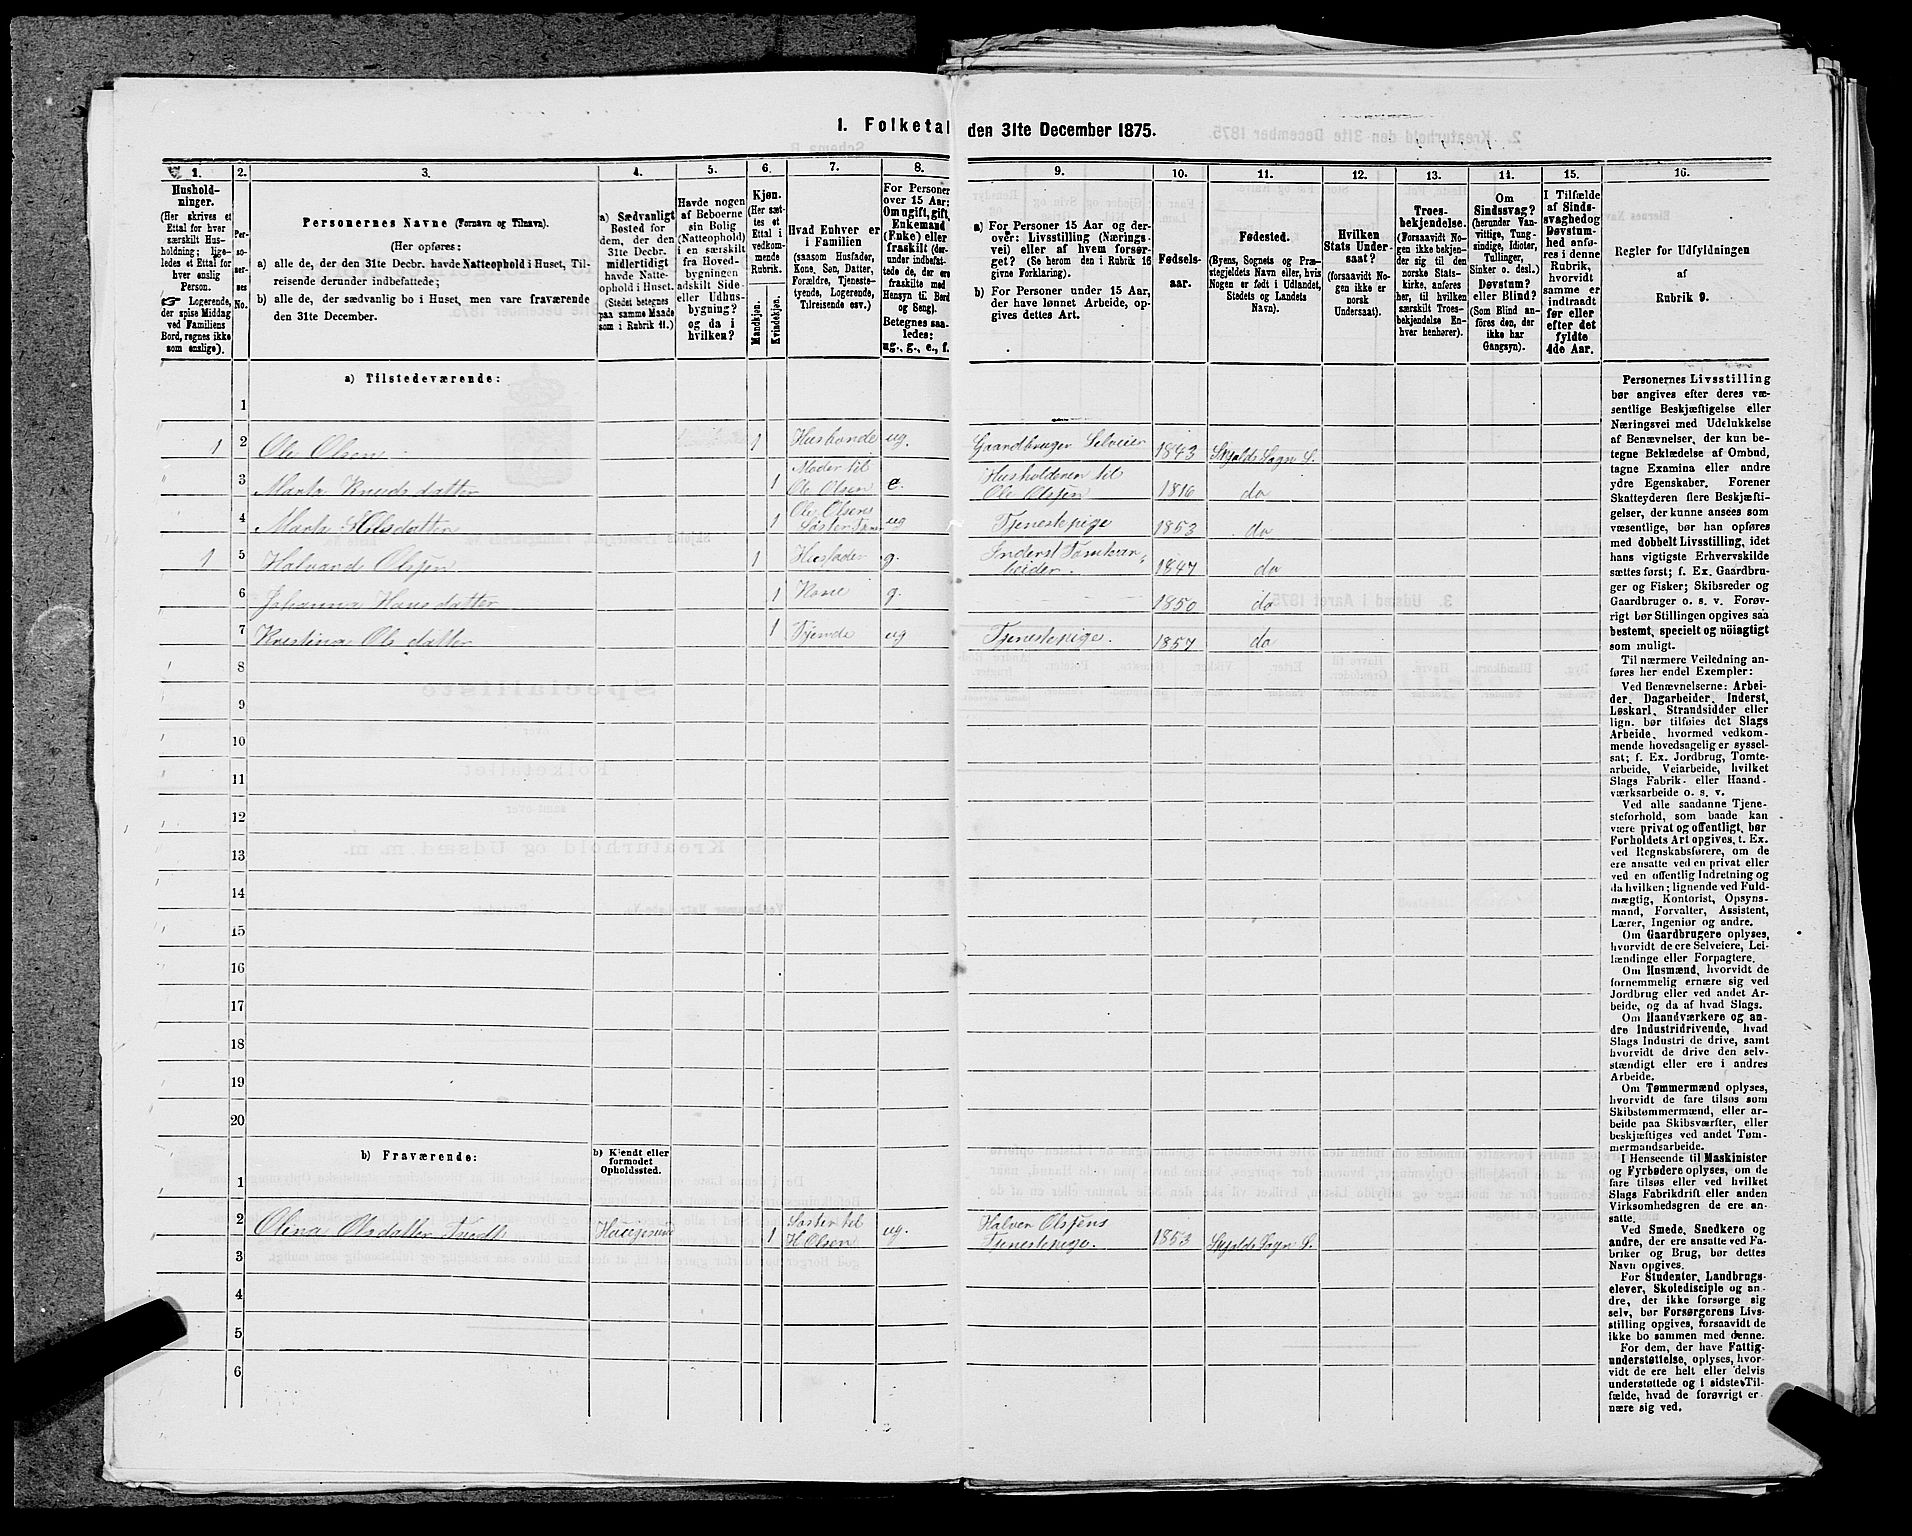 1. Folketal den 31te December 1875.
1.
2.
3.
4.
5.
6.
7.
8.
9.
10.
11.
12.
13.
14.
15.
16.
Hushold-
ninger.
(Her skrives et
Ettal for hver
særskilt Hus-
holdning; lige-
ledes et Ettal for
hver enslig
Person.
☞ Logerende,
der spise Middag
ved Familiens
Bord, regnes ikke
som enslige).
Per-
so-
ner-
nes
No.
Personernes Navne (Fornavn og Tilnavn).
(Her opføres:
a) alle de, der den 31te Decbr. havde Natteophold i Huset, Til-
reisende derunder indbefattede;
b) alle de, der sædvanlig bo i Huset, men vare fraværende
den 31te December.
a) Sædvanligt
Bosted for
dem, der den
31te Decbr.
midlertidigt
havde Natte-
ophold i Huset.
(Stedet betegnes
paa samme Maade
som i Rubrik 11.)
Havde nogen
af Beboerne
sin Bolig
(Natteophold)
i en særskilt
fra Hoved-
bygningen
adskilt Side-
eller Udhus-
bygning?
og da i
hvilken?
Kjøn.
(Her sæt-
tes et
Ettal i
vedkom-
mende
Rubrik.
Mandkjøn.
Kvindekjøn.
Hvad Enhver er
i Familien
(saasom Husfader,
Kone, Søn, Datter,
Forældre, Tjeneste-
tyende, Logerende,
Tilreisende osv.)
For Personer
over 15 Aar:
Om ugift, gift,
Enkemand
(Enke) eller
fraskilt (der-
under indbefat-
tede de, der ere
fraskilte med
Hensyn til Bord
og Seng).
Betegnes saa-
ledes:
ug., g., e., f.
a) For Personer 15 Aar og der-
over: Livsstilling (Nærings-
vei) eller af hvem forsør-
get? (Se herom den i Rubrik 16
givne Forklaring).
b) For Personer under 15 Aar,
der have lønnet Arbeide, op-
gives dettes Art.
Fødsels-
aar.
Fødested.
(Byens, Sognets og Præ-
stegjeldets Navn eller, hvis
Nogen er født i Udlandet,
Stedets og Landets
Navn).
Hvilken
Stats Under-
saat?
(forsaavidt No-
gen ikke er
norsk
Undersaat).
Troes-
bekjendelse.
(Forsaavidt No-
gen ikke bekjen-
der sig til den
norske Stats-
kirke, anføres
her, til hvilken
særskilt Troes-
bekjendelse En-
hver henhører).
Om
Sindssvag?
(herunder Van-
vittige, Tung-
sindige, Idioter,
Tullinger,
Sinker o. desl.)
Døvstum?
eller Blind?
(Som Blind an-
føres den, der
ikke har
Gangsyn).
I Tilfælde
af Sinds-
svaghed og
Døvstum-
hed anfø-
res i denne
Rubrik,
hvorvidt
samme er
indtraadt
før eller
efter det
fyldte
4de Aar.
Regler for Udfyldningen
af
Rubrik 9.
a) Tilstedeværende:
1
1 2 Ole Olsen 1 Husbonde ug. Gaardbruger Selveier 1843 Skjolds Sogn S.
3 Marta Knudsdatter 1 Moder til Ole Olsen e. Husholderen til Ole Olsen 1816 do
4 Marta Olsdatter 1 Ole Olsens Søster ug Tjenestepige 1853 do
1 5 Halvand Olsen 1 Husfader g. Inderst 1847 do
6 Johanna Hansdatter 1 Kone g. 1850 do
7 Kristina Olsdatter 1 Tjende ug Tjenestepige. 1857 do
8
9
10
11
12
13
14
15
16
17
18
19
20
b) Fraværende:
b) Kjendt eller
formodet
Opholdssted.
1
2 Olina Olsdatter 1 Søster til H Olsen ug. Halvor Olsens Tjenestepige. 1853 Skjolds Sogn S.
3
4
5
6
Personernes Livsstilling
bør angives efter deres væ-
sentlige Beskjæftigelse eller
Næringsvei med Udelukkelse
af Benævnelser, der kun be-
tegne Beklædelse af Ombud,
tagne Examina eller andre
ydre Egenskaber. Forener
Skatteyderen flere Beskjæfti-
gelser, der kunne ansees som
væsentlige, bør han opføres
med dobbelt Livsstilling, idet
hans vigtigste Erhvervskilde
sættes først; f. Ex. Gaardbru-
ger og Fisker; Skibsreder og
Gaardbruger o. s. v. Forøv-
rigt bør Stillingen opgives saa
bestemt, specielt og nöiagtigt
som muligt.
Til nærmere Veiledning an-
føres her endel Exempler:
Ved Benævnelserne: Arbei-
der, Dagarbeider, Inderst,
Løskarl, Strandsidder eller
lign. bør tilføies det Slags
Arbeide, hvormed vedkom-
mende hovedsagelig er syssel-
sat; f. Ex. Jordbrug, Tomte-
arbeide, Veiarbeide, hvilket
Slags Fabrik- eller Haand-
værksarbeide o. s. v.
Ved alle saadanne Tjene-
steforhold, som baade kan
være privat og offentligt, bør
Forholdets Art opgives, t. Ex.
ved Regnskabsførere, om de
ere ansatte ved en privat eller
ved en offentlig Indretning og
da hvilken; lignende ved Fuld-
mægtig, Kontorist, Opsyns-
mand, Forvalter, Assistent,
Lærer, Ingeniør og andre.
Om Gaardbrugere oplyses,
hvorvidt de ere Selveiere, Lei-
lændinge eller Forpagtere.
Om Husmænd, hvorvidt de
fornemmelig ernære sig ved
Jordbrug eller ved andet Ar-
beide, og da af hvad Slags.
Om Haandværkere og an-
dre Industridrivende, hvad
Slags Industri de drive, samt
hvorvidt de drive den selv-
stændigt eller ere i andres
Arbeide.
Om Tømmermænd oplyses,
hvorvidt de fare tilsøs som
Skibstømmermænd, eller ar-
beide paa Skibsværfter, eller
beskjæftiges ved andet Tøm-
mermandsarbeide.
I Henseende til Maskinister
og Fyrbødere oplyses, om de
fare tilsøs eller ved hvilket
Slags Fabrikdrift eller anden
Virksomhedsgren de ere an-
satte.
Ved Smede, Snedkere og
andre, der ere ansatte ved Fa-
briker og Brug, bør dettes
Navn opgives.
For Studenter, Landbrugs-
elever, Skoledisciple og an-
dre, der ikke forsørge sig
selv, bør Forsørgerens Livs-
stilling opgives, forsaavidt de
ikke bo sammen med denne.
For dem, der have Fattig-
understøttelse, oplyses, hvor-
vidt de ere helt eller delvis
understøttede og i sidste Til-
fælde, hvad de forøvrigt er-
nære sig ved.